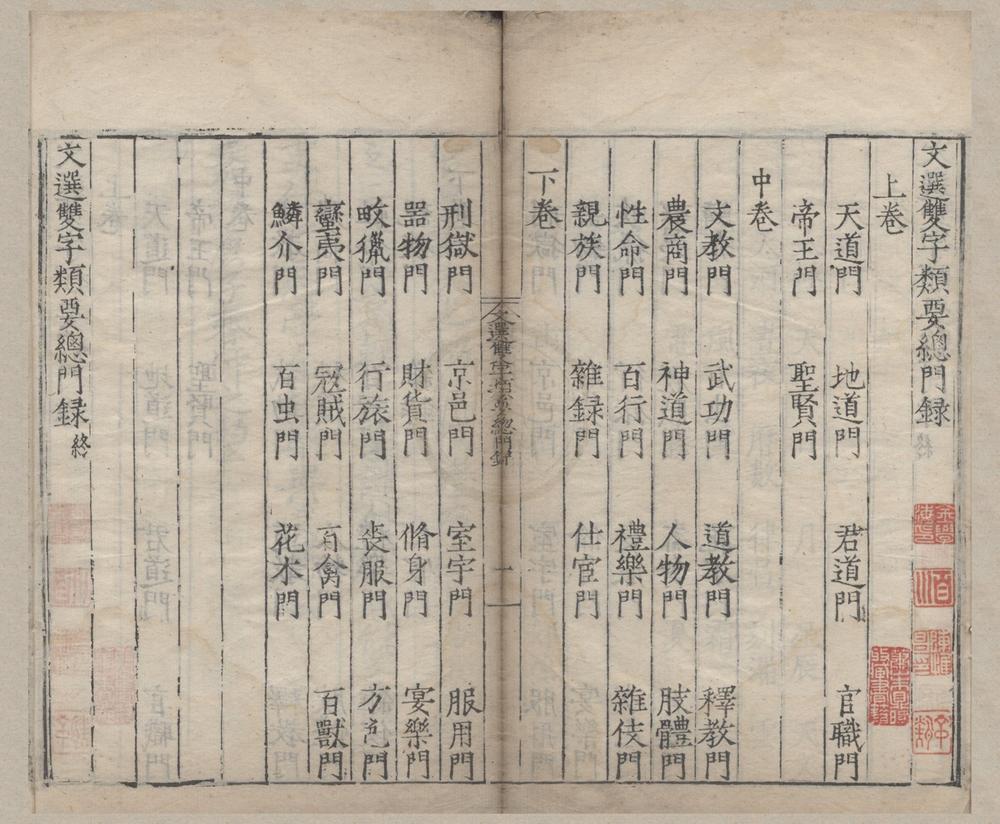 文選雙字類要總門録
上卷
天道門 地道門 君道門 官職門
帝王門 聖賢門
中卷
文教門 武功門 道教門 釋教門
農商門 神道門 人物門 肢體門
性命門 百行門 禮樂門 雜伎門
親族門 雜録門 仕宦門
下卷
文選雙字類要總門録
一
刑獄門 京邑門 室宇門 服用門
器物門 財貨門 脩身門 宴樂門
畋獵門 行旅門 喪服門 方宄門
蠻夷門 冦賊門 百禽門 百獸門
鱗介門 百虫門 花木門
文選雙字類要總門録 終